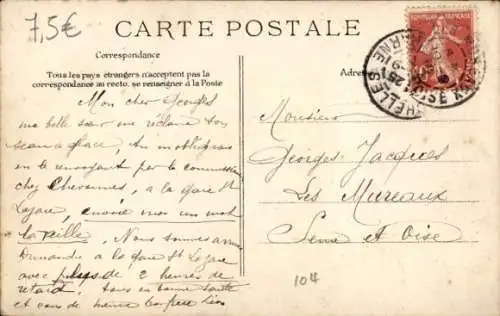 7,5€
CARTE POSTALE
Correspondance
Tous les pays étrangers n'acceptent pas la
correspondance au recto. se renseigner à la Poste
Adres
Mon cher Georges
ma belle sœur me réclame son
seau a glace. Au
en te envoyant par le
chez Chevannes, a la gare St
Lazare, envoie moi un mot
la veille. Nous sommes
Dimanche a la gare St Lazare
avec plus de 2 heures de
retard. en bonne santé
et
Monsieur
Georges Jacques
Les Mureaux
Seine et Oise
104